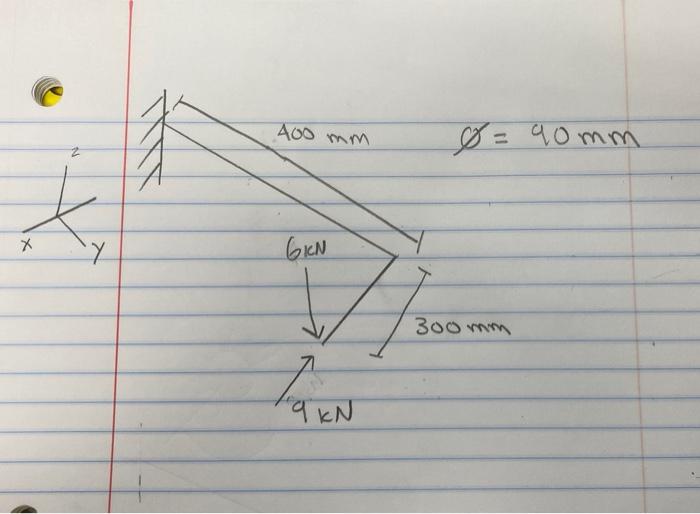 400 mm Ø = 90 mm
z
x y
6 kN
300 mm
9 kN